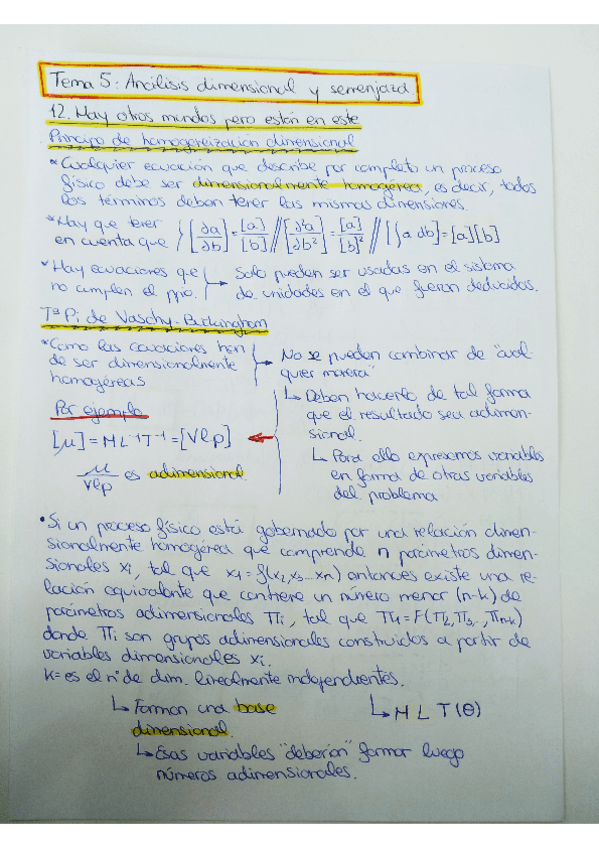 Tema 5: Análisis dimensional y semenjaza
12. Hay otros mundos pero están en este
Principio de homogeneización dimensional
*Cualquier ecuación que describe por completo un proceso
físico debe ser dimensionalmente homogénea, es decir, todos
los términos deben tener las mismas dimensiones.
*Hay que tener
en cuenta que
[∂a/∂b] = [a]/[b] // [∂²a/∂b²] = [a]/[b]² // [∫a db] = [a][b]
*Hay ecuaciones que
no cumplen el ppio.
→ Solo pueden ser usadas en el sistema
de unidades en el que fueron deducidas.
Tª Pi de Vaschy-Buckingham
*Como las ecuaciones han
de ser dimensionalmente
homogéneas
→ No se pueden combinar de "cual-
quier manera"
↳ Deben hacerlo de tal forma
que el resultado sea adimen-
sional.
↳ Para ello expresamos variables
en forma de otras variables
del problema
Por ejemplo
[μ] = M L⁻¹T⁻¹ = [Vlρ]
μ/Vlρ es adimensional
• Si un proceso físico está gobernado por una relación dimen-
sionalmente homogénea que comprende n parámetros dimen-
sionales xi, tal que x1 = f(x2,x3...xn) entonces existe una re-
lación equivalente que contiene un número menor (n-k) de
parámetros adimensionales πi, tal que π1 = F(π2,π3..,πn-k)
donde πi son grupos adimensionales construidos a partir de
variables dimensionales xi.
k= es el nº de dim. linealmente independientes.
↳ Forman una base
dimensional.
↳ M L T (θ)
↳ Esas variables "deberían" formar luego
números adimensionales.